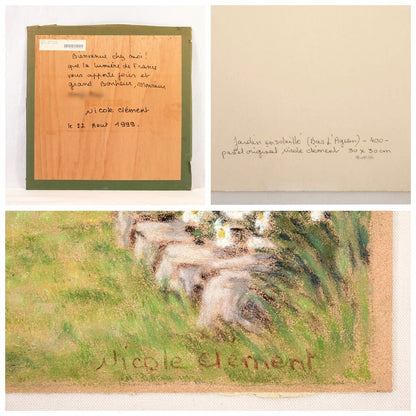 Bienvenue chez moi!
que la lumière de France
vous apporte joies et
grand Bonheur, Monsieur
Nicole Clément
le 22 Août 1999.
Jardin ensoleillé (Bas d'Ageen) - 400-
pastel original nicole clement 30 x 30 cm
Nicole Clément